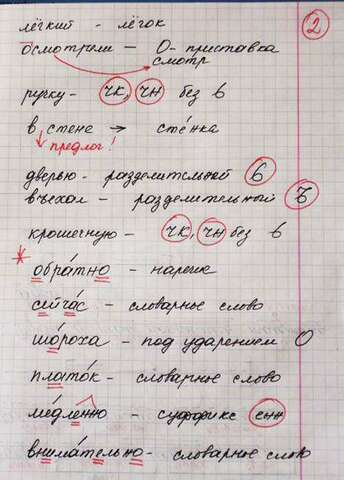 2
лёгкий - лёгок
осмотрели — О- приставка
смотр
ручку - чк, чн без ь
в стене → стенка
предлог!
дверью - разделительный ь
въехал - разделительный ъ
крошечную - чк, чн без ь
* обратно - нареч
сейчас - словарное слово
шороха - под ударением О
платок - словарное слово
медленно - суффикс енн
внимательно - словарное слово